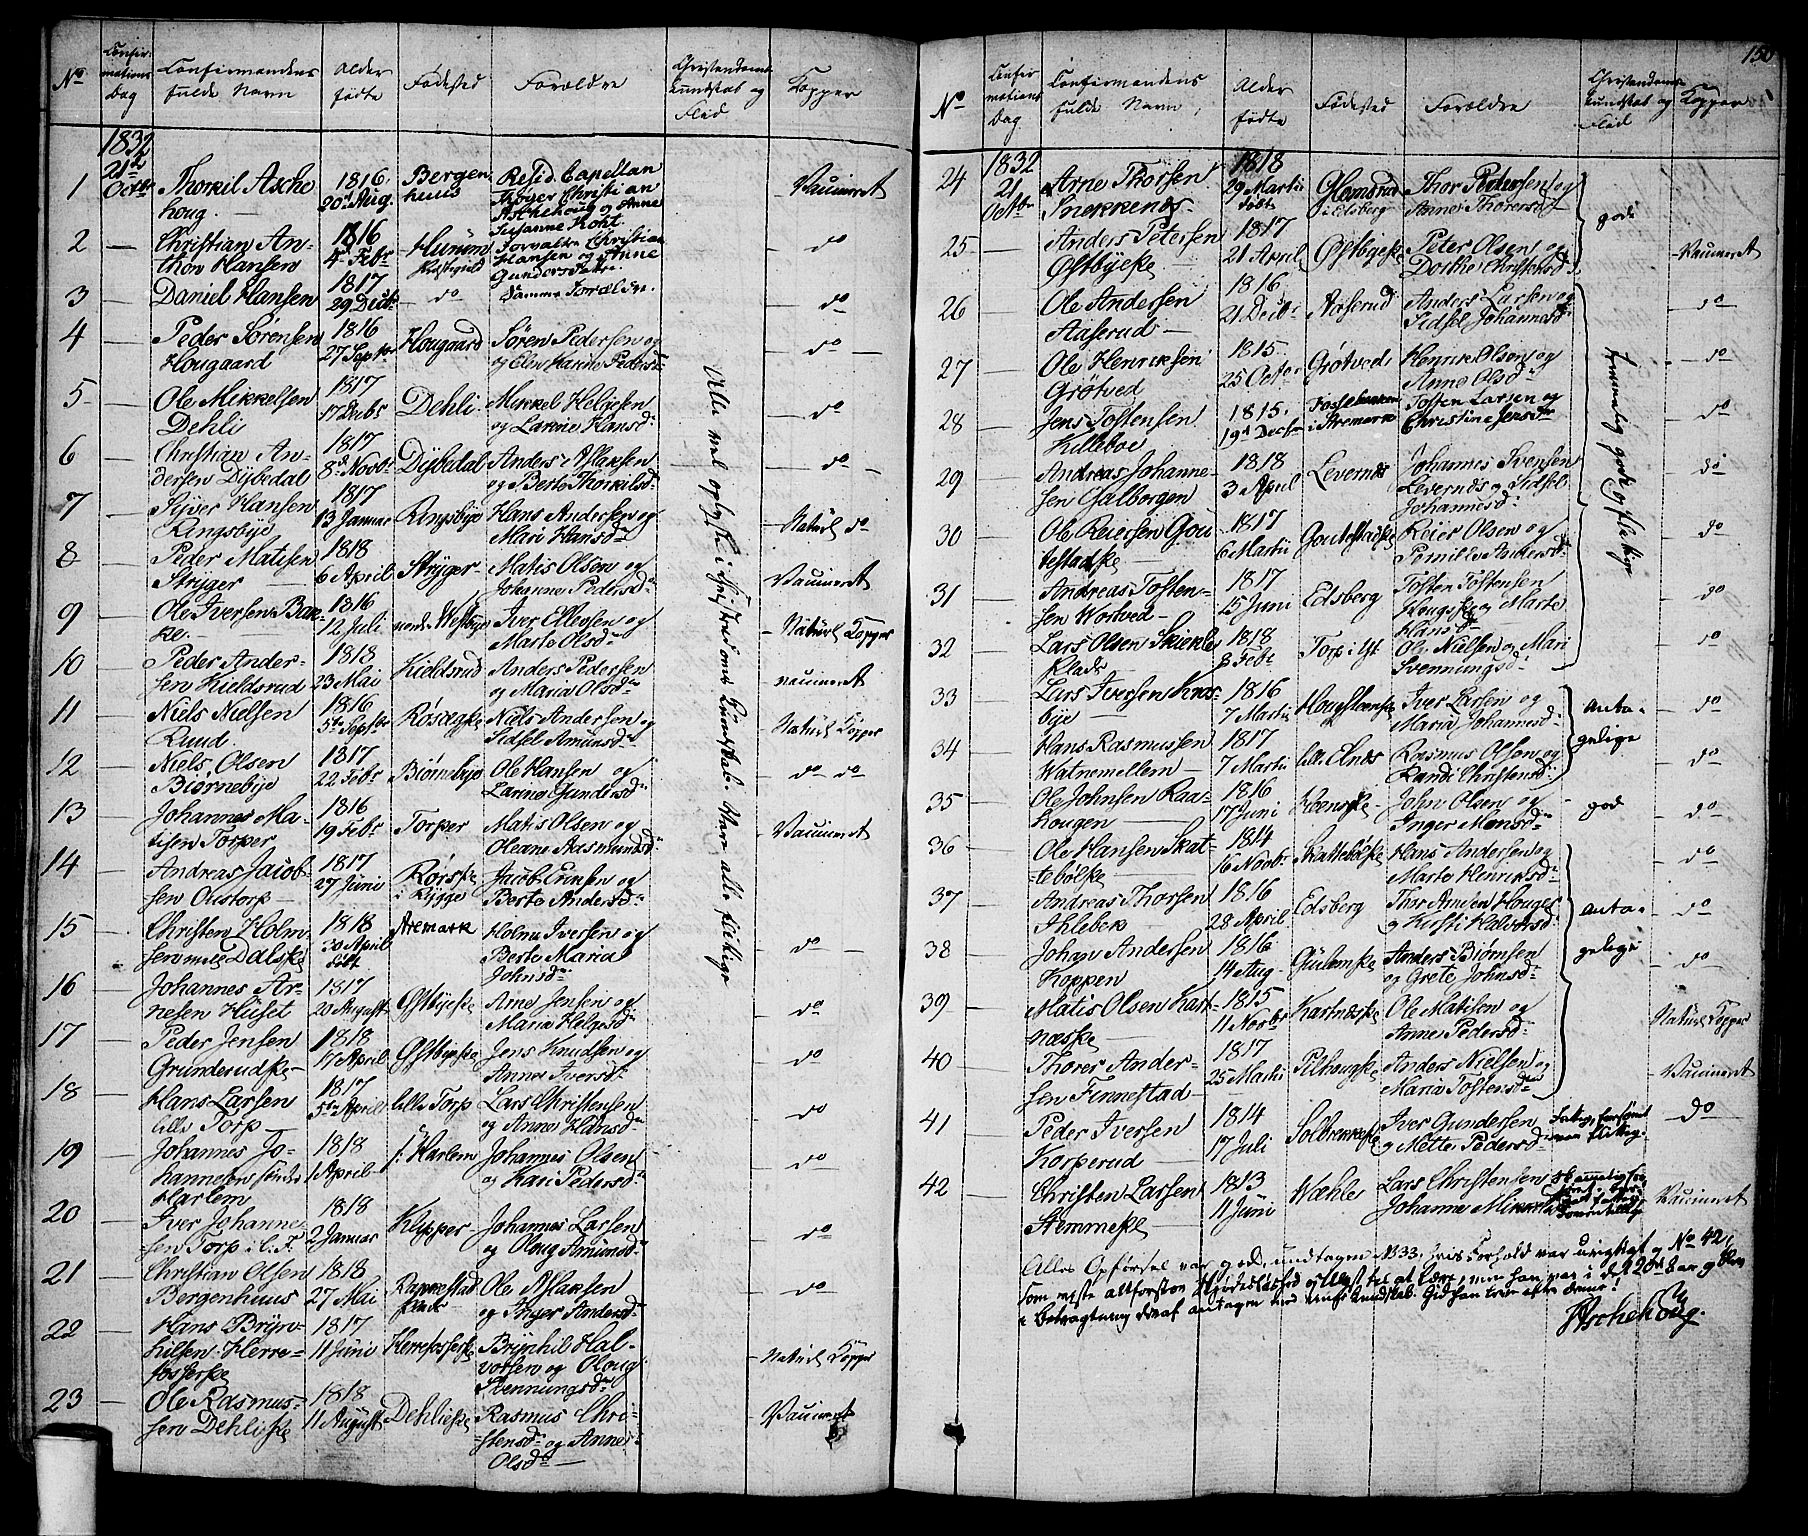 150
No
Confir-
mations
Dag
Confirmandens
fulde Navn
Alder
fødte
Fødested
Forældre
Christendoms
Kundskab og
Flid
Kopper
1832
21de
Octbr
1
Thorkil Asche
houg.
1816
20d Aug.
Bergen
huus
Resid. Capellan
Thøger Christian
Aschehoug og Anne
Susanne
Vaccineret
2
Christian An-
thon Hansen
1816
4 Febr
Hurum
Christian
Hansen og Anne
do
3
Daniel Hansen
1817
29 Decbr
do
Samme Forældre.
do
4
Peder Sørensen
Hougaard
1816
27 Septbr
Hougaard
Søren Pedersen og
og Elen Karine Pedersdr
do
5
Ole Mikkelsen
Dehli
1817
17 Decbr
Dehli
Mikkel Helgesen
og Larine Hansdr
do
6
Christian An-
dersen Dybedal
1817
8de Novbr
Dybedal
Anders Aslaksen
og Berte Thorkilsdr
do
7
Syver Hansen
Ringsbye
1817
13 Januar
Ringsbye
Hans Andersen og
Mari Hansdr
Naturl do
8
Peder Matisen
Stryger
1818
6 April
Stryger
Matis Olsen og
Johanne Pedersdr
Vaccineret
9
Ole Iversen Bak-
ke.
1816
12 Juli
Westbye
Iver Ellevsen og
Marte Olsdr
Naturl Kopper
10
Peder Ander-
sen Kieldsrud
1818
23 Mai
Kieldsrud
Anders Pedersen
og Maria Olsdr
vaccineret
11
Niels Nielsen
Ruud.
1816
5te Septbr
Røsægske
Niels Andersen og
Sidsel Amunsdr
Naturl Kopper
12
Niels Olsen
Biørnebye
1817
22 Febr
Biørnebye
Ole Hansen og
Larine Gundersdr
do do
13
Johannes Ma-
tisen Torper
1816
19 Febr
Torper
Matis Olsen og
Oleane Rasmundsdr
Vaccineret
14
Andreas Jacob-
sen Oustorp
1817
27 Juni
Rørske
i Rygge
Jacob Eriksen og
Berte Andersdr
15
Christen Holm-
sen Dalske
1818
30 April
født
Aremark
Holm Iversen og
Berte Maria
Johnsdr
do
16
Johannes Ar-
nesen Huset
1817
20 August
Østbyeske
Arne Jensen og
Maria Helgesdr
do
17
Peder Jensen
Grunderudske
1818
17 April
Østbyeske
Jens Knudsen og
Anne Iversdr
do
18
Hans Larsen
lille Torp
1817
5te April
lille Torp
Lars Christensen
og Anne Hansdr
do
19
Johannes Jo-
hannesen
Harlem
1818
1 April
Harlem
Johannes Olsen
og Kari Pedersdr
do
20
Iver Johanne-
sen Torp
1818
2 Januar
Klypper
Johannes Larsen
og Oloug Amunsdr
do
21
Christian Olsen
Bergenhuus
1818
27 Mai
Rakkestad
Ole Aslaksen
og Inger Andersdr
do
22
Hans Bryn-
hilsen Herre-
fosserske
1817
11 Juni
Herrefosserske
Brynhil Hal-
vorsen og Oloug
Svenningsdr
Naturl Kopper
23
Ole Rasmus-
sen Dehlieske
1818
11 August
Dehlieske
Rasmus Chri-
stensen og Anne
Olsdr
Vaccineret
Alle vel oplyste i Christendoms Kundskab. Vare alle flittige
No
Confir
mations
Dag
Confirmandens
fulde Navn
Alder
fødte
Fødested
Forældre
Christendoms-
Kundskab og
Flid
Kopper
1832
21
Octbr
24
Arne Thorsen
Snekkenes
1818
29 Martii
født
Glomsrud
i Edsberg
Thor Pedersen og
Anne Thoresdr
god
25
Anders Petersen
Østbyeske
1817
21 April
Østbyeske
Peter Olsen og
Dorthe Christensdr
Vaccineret
26
Ole Andersen
Aaserud
1816
21 Decbr
Aaserud
Anders Larsen og
Sidsel Johannesdr
do
27
Ole Henriksen
Grøtved
1815
25 Octbr
Grøtved
Henrik Olsen og
Anne Olsdr
do
28
Jens Tostensen
Killeboe
1815
19d Decbr
i Aremark
Tosten Larsen og
Christine Jensdr
do
29
Andreas Johanne-
sen Galborgen
1818
3 April
Levernes
Johannes Svensen
Levernes og Sidsel
Johannesdr
do
30
Ole Reiersen Gou
testadske
1817
6 Martii
Goutestadske
Reier Olsen og
Pernille Andersdr
do
31
Andreas Tosten-
sen Wortved
1817
15 Juni
Edsberg
Tosten Tostensen
Hougske og Marte
Hansdr
do
32
Lars Olsen Skiekle
plads
1818
8 Febr
Torp
Ole Nielsen og Mari
Svenningsdr
do
temmelig gode og flittige
33
Lars Iversen Kros-
bye
1816
7 Martii
Iver Larsen og
Maria Johannesdr
anta-
gelige
do
34
Hans Rasmussen
Watnemellem
1817
7 Martii
lille Elnes
Rasmus Olsen og
Randi Christensdr
do
35
Ole Johnsen Raa-
hougen
1816
17 Juni
Hoenske
John Olsen og
Inger Monsdr
god
do
36
Ole Hansen Skat-
tebølske
1814
16 Novbr
Skattebølske
Hans Andersen og
Marte Henriksdr
do
37
Andreas Thorsen
Ihlebek
1816
28 April
Edsberg
Thor Houger
og Kirsti Halvorsdr
anta-
gelige
do
38
Johan Andersen
Koppen
1816
14 Aug
Gulemske
Anders Biørnsen
og Grete Johnsdr
do
39
Matis Olsen Kart-
næske
1815
11 Novbr
Kartneske
Ole Matisen og
Anne Pedersdr
Naturl Kopper
40
Thorer Ander-
sen Finnestad
1817
25 Martii
Pilhougske
Anders Nielsen og
Maria Tostensdr
Vaccineret
41
Peder Iversen
Korperud
1814
17 Juli
Solbrekkeske
Iver Gundersen
og Mette Pedersdr
men flittig
do
42
Christen Larsen
Stemmeske
1813
11 Juni
Wæhle
Lars Christensen
Johanne
Vaccineret
Alles Opførsel var god, undtagen No 33, hvis Forhold var urigtigt og No 42,
som meste altforstor og Ulyst til at lære, men han var i det 20de Aar, og blev
i Betragtning deraf antagen med Kundskab. Gid han troe efter denne!
Aschehoug.